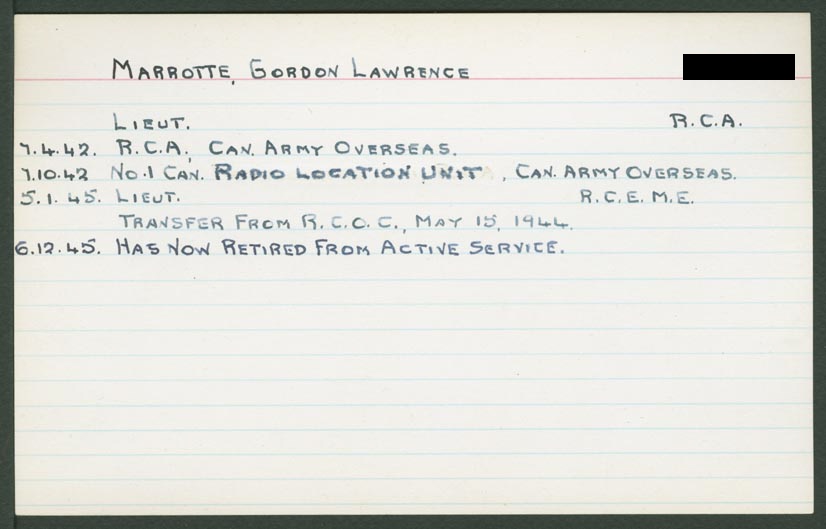 MARROTTE, GORDON LAWRENCE
LIEUT. R.C.A.
7.4.42. R.C.A., CAN. ARMY OVERSEAS.
7.10.42 NO.1 CAN. RADIO LOCATION UNIT, CAN. ARMY OVERSEAS.
5.1.45. LIEUT. R.C.E.M.E.
TRANSFER FROM R.C.O.C., MAY 15, 1944.
6.12.45. HAS NOW RETIRED FROM ACTIVE SERVICE.